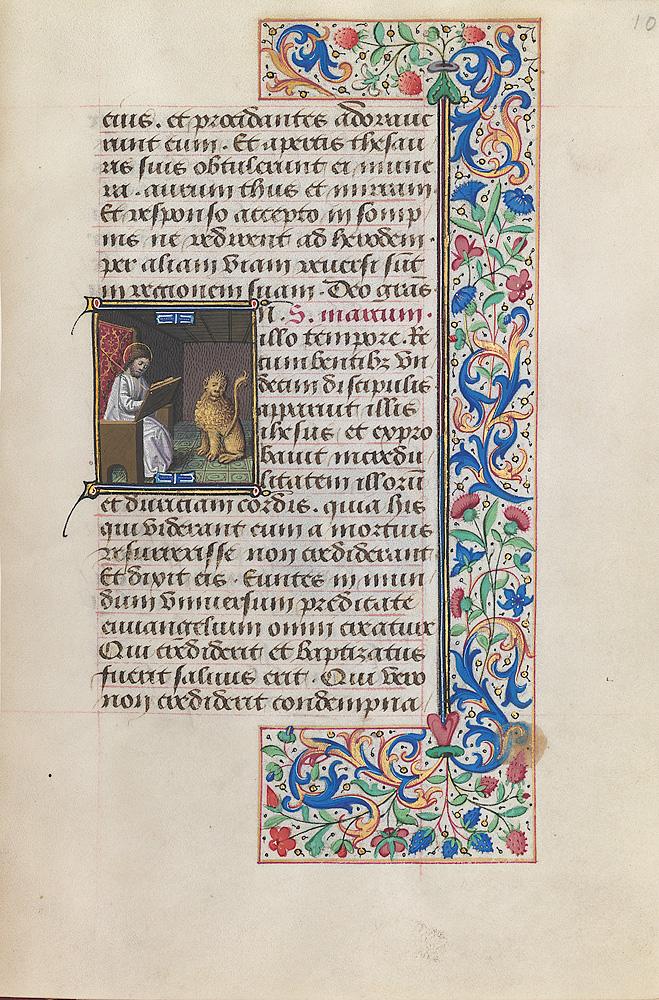 10
eius. et procidantes adorave
runt eum. Et apertis thesau
ris suis obtulerunt ei mune
ra. aurum thus et mirram.
Et responso accepto in somp
nis ne redirent ad herodem.
per aliam viam reversi sūt
in regionem suam. Deo gr̄as
N. S. marcum.
illo tempore. Re
cumbentibꝫ vn
decim discipulis.
apparuit illis
ihesus et expro
bauit incredu
litatem illorū
et duriciam cordis. quia his
qui viderant eum a mortuis
resurrexisse non crediderant
Et dixit eis. Euntes in mun
dum vniuersum predicate
euuangelium omni creature
Qui crediderit et baptizatus
fuerit saluus erit. Qui vero
non crediderit condempna